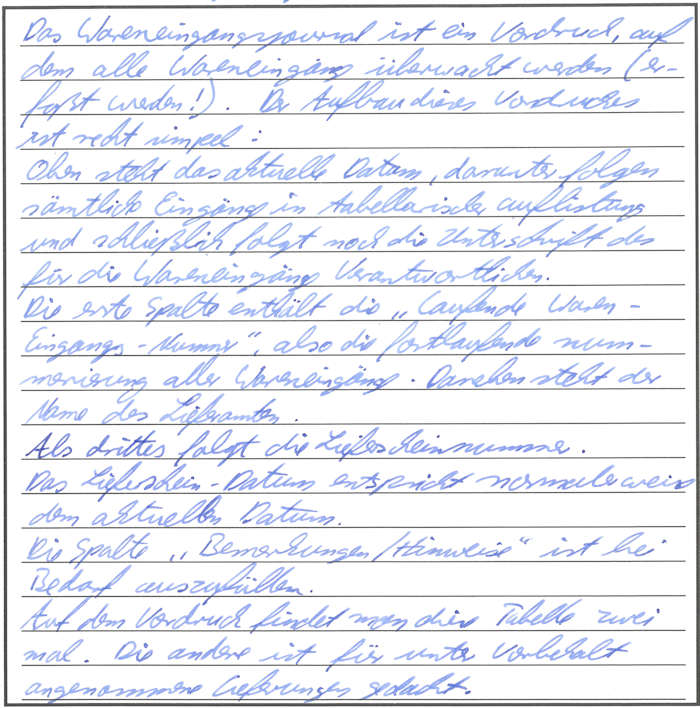 Das Wareneingangsjournal ist ein Vordruck, auf
dem alle Wareneingänge überwacht werden (er-
faßt werden!). Der Aufbau dieses Vordruckes
ist recht simpel:
Oben steht das aktuelle Datum, darunter folgen
sämtliche Eingänge in tabellarischer auflistung
und schließlich folgt noch die Unterschrift des
für die Wareneingänge Verantwortlichen.
Die erste Spalte enthält die „Laufende Waren-
Eingangs-Nummer", also die fortlaufende num-
merierung aller Wareneingänge. Daneben steht der
Name des Lieferanten.
Als drittes folgt die Lieferscheinnummer.
Das Lieferschein-Datum entspricht normalerweise
dem aktuellen Datum.
Die Spalte „Bemerkungen/Hinweise" ist bei
Bedarf auszufüllen.
Auf dem Vordruck findet man diese Tabelle zwei
mal. Die andere ist für unter Vorbehalt
angenommene Lieferungen gedacht.